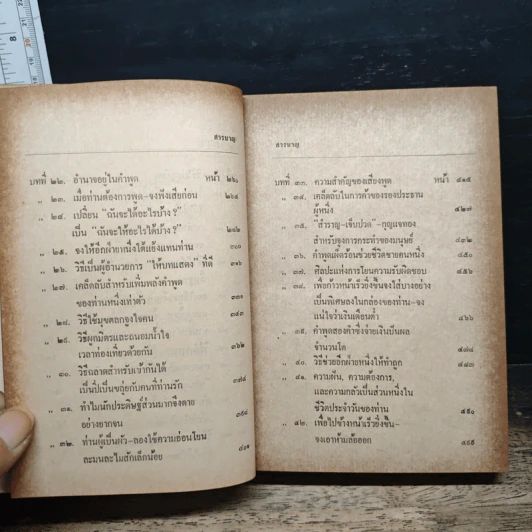 สารบาญ
บทที่ ๒๒. อำนาจอยู่ในคำพูด หน้า ๒๖๑
,, ๒๓. เมื่อท่านต้องการพูด–จงฟังเสียก่อน
,, ๒๔. เปลี่ยน "ฉันจะได้อะไรบ้าง ?"
เป็น "ฉันจะให้อะไรได้บ้าง ?"
,, ๒๕. จงให้อีกฝ่ายหนึ่งโต้แย้งแทนท่าน
,, ๒๖. วิธีเป็นผู้อำนวยการ "ให้บทแสดง" ที่ดี ๓๑๖
,, ๒๗. เคล็ดลับสำหรับเพิ่มพลังคำพูด
ของท่านหนึ่งเท่าตัว ๓๓๑
,, ๒๘. วิธีใช้มุขตลกจูงใจคน ๓๔๓
,, ๒๙. วิธีผูกมิตรและถนอมน้ำใจ
เวลาท่องเที่ยวด้วยกัน ๓๖๒
,, ๓๐. วิธีฉลาดสำหรับเข้ากันได้
เป็นปี่เป็นขลุ่ยกับคนที่ท่านรัก ๓๗๘
,, ๓๑. ทำไมนักประดิษฐ์ส่วนมากจึงตาย
อย่างยากจน ๓๙๔
,, ๓๒. ท่านผู้เป็นผัว–ลองใช้ความอ่อนโยน
ละมุนละไมสักเล็กน้อย
สารบาญ
บทที่ ๓๓. ความสำคัญของเสียงพูด หน้า ๔๑๕
,, ๓๔. เคล็ดลับในการค้าของรองประธาน
ผู้หนึ่ง ๔๒๗
,, ๓๕. "สำราญ–เจ็บปวด"–กุญแจทอง
สำหรับจูงการกระทำของมนุษย์ ๔๓๒
,, ๓๖. คำพูดเผ็ดร้อนช่วยชีวิตชายคนหนึ่ง ๔๕๐
,, ๓๗. ศิลปะแห่งการโยนความรับผิดชอบ ๔๕๖
,, ๓๘. เพื่อก้าวหน้าเร็วยิ่งขึ้นจงใส่บางอย่าง
เป็นพิเศษลงในกล่องของท่าน–จง
แน่ใจว่าเงินเดือนต่ำ ๔๖๖
,, ๓๙. คำพูดสองคำซึ่งจ่ายเงินเป็นผล
จำนวนโต ๔๗๔
,, ๔๐. วิธีช่วยอีกฝ่ายหนึ่งให้ทำถูก ๔๘๓
,, ๔๑. ความฝัน, ความต้องการ,
และความกลัวเป็นส่วนหนึ่งใน
ชีวิตประจำวันของท่าน
,, ๔๒. เพื่อไปข้างหน้าเร็วยิ่งขึ้น–
จงเอาห้ามล้อออก